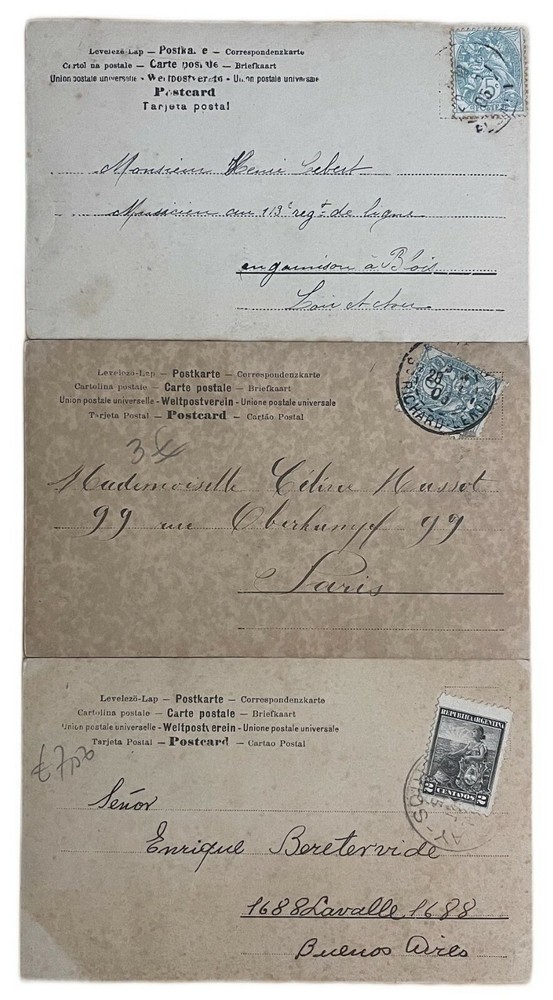 Levelező-Lap — Postka e — Correspondenzkarte
Cartol na postale — Carte postale — Briefkaart
Union postale universelle - Weltpostverein - Union postale universale
Postcard
Tarjeta postal
Monsieur Henri Lebert
Musicien au 113e regt de ligne
en garnison à Blois
Loir et Cher
Levelező-Lap — Postkarte — Correspondenzkarte
Cartolina postale — Carte postale — Briefkaart
Union postale universelle - Weltpostverein - Unione postale universale
Tarjeta Postal — Postcard — Cartão Postal
RICHARD-LENOIR
Mademoiselle Céline Mussot
99 rue Oberkampf 99
Paris
Levelező-Lap — Postkarte — Correspondenzkarte
Cartolina postale — Carte postale — Briefkaart
Union postale universelle - Weltpostverein - Unione postale universale
Tarjeta Postal — Postcard — Cartao Postal
REPUBLICA ARGENTINA
2 CENTAVOS 2
£7,50
Señor
Enrique Beretervide
1688 Lavalle 1688
Buenos Aires